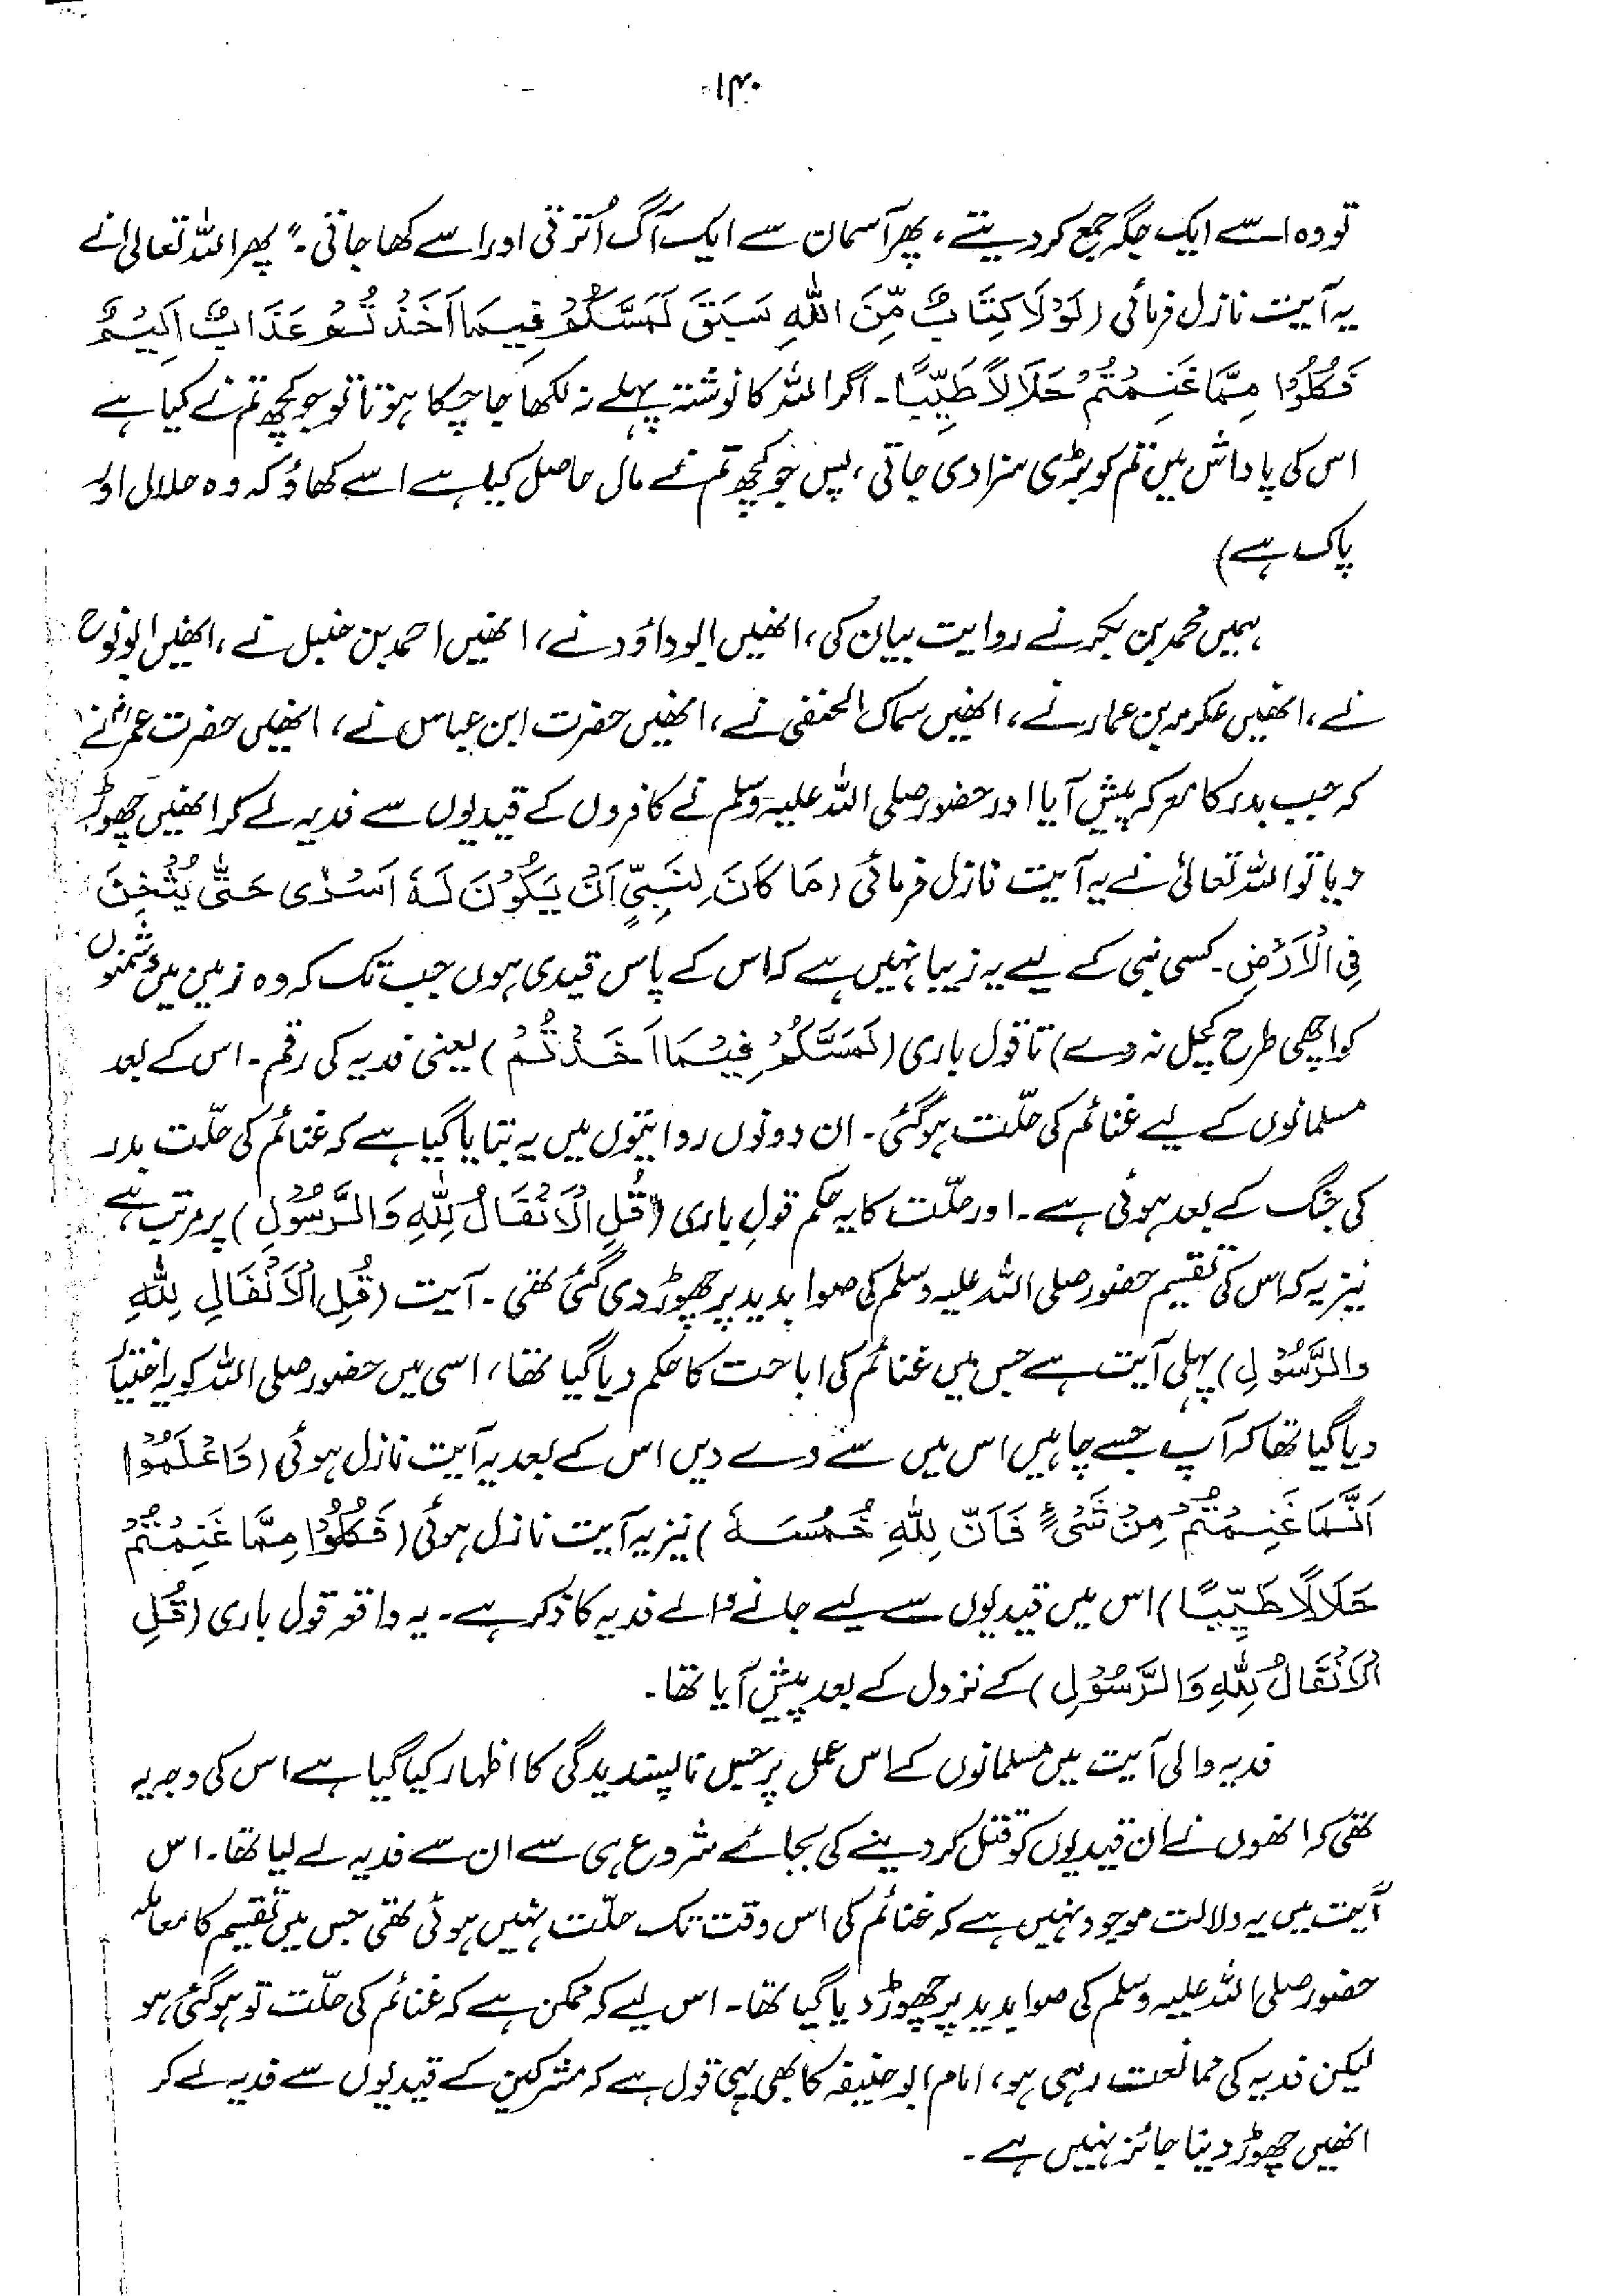 ۱۴۰
تو وہ اسے ایک جگہ جمع کر دیتے، پھر آسمان سے ایک آگ اُترتی اور اسے کھا جاتی۔" پھر اللہ تعالیٰ نے
یہ آیت نازل فرمائی (لَوْلَا كِتَابٌ مِّنَ اللهِ سَبَقَ لَمَسَّكُمْ فِيمَا اَخَذْتُمْ عَذَابٌ اَلِيْمٌ
فَكُلُوْا مِمَّا غَنِمْتُمْ حَلَالًا طَيِّبًا۔ اگر اللہ کا نوشتہ پہلے نہ لکھا جا چکا ہوتا تو جو کچھ تم نے کیا ہے
اس کی پاداش میں تم کو بڑی سزا دی جاتی، پس جو کچھ تم نے مال حاصل کیا ہے اسے کھاؤ کہ وہ حلال اور
پاک ہے)
ہمیں محمد بن بکر نے روایت بیان کی، انھیں ابو داؤد نے، انھیں احمد بن حنبل نے، انھیں ابو نوح
نے، انھیں عکرمہ بن عمار نے، انھیں سماک الحنفی نے، انھیں حضرت ابن عباس نے، انھیں حضرت عمرؓ نے
کہ جب بدر کا معرکہ پیش آیا اور حضور صلی اللہ علیہ وسلم نے کافروں کے قیدیوں سے فدیہ لے کر انھیں چھوڑ
دیا تو اللہ تعالیٰ نے یہ آیت نازل فرمائی (مَا كَانَ لِنَبِيٍّ اَنْ يَكُوْنَ لَهٗ اَسْرٰى حَتّٰى يُثْخِنَ
فِي الْاَرْضِ۔ کسی نبی کے لیے یہ زیبا نہیں ہے کہ اس کے پاس قیدی ہوں جب تک کہ وہ زمین میں دشمنوں
کو اچھی طرح کچل نہ دے) تا قول باری (لَمَسَّكُمْ فِيْمَا اَخَذْتُمْ) یعنی فدیہ کی رقم۔ اس کے بعد
مسلمانوں کے لیے غنائم کی حلّت ہوگئی۔ ان دونوں روایتوں میں یہ بتایا گیا ہے کہ غنائم کی حلّت بدر
کی جنگ کے بعد ہوئی ہے۔ اور حلّت کا یہ حکم قولِ باری (قُلِ الْاَنْفَالُ لِلّٰهِ وَالرَّسُوْلِ) پر مرتب ہے
نیز یہ کہ اس کی تقسیم حضور صلی اللہ علیہ وسلم کی صوابدید پر چھوڑ دی گئی تھی۔ آیت (قُلِ الْاَنْفَالِ لِلّٰهِ
والرَّسُوْلِ) پہلی آیت ہے جس میں غنائم کی اباحت کا حکم دیا گیا تھا، اسی میں حضور صلی اللہ کو یہ اختیار
دیا گیا تھا کہ آپ جسے چاہیں اس میں سے دے دیں اس کے بعد یہ آیت نازل ہوئی (وَاعْلَمُوْا
اَنَّمَا غَنِمْتُمْ مِنْ شَيْءٍ فَاَنَّ لِلّٰهِ خُمُسَهٗ) نیز یہ آیت نازل ہوئی (فَكُلُوْا مِمَّا غَنِمْتُمْ
حَلَالًا طَيِّبًا) اس میں قیدیوں سے لیے جانے والے فدیہ کا ذکر ہے۔ یہ واقعہ قول باری (قُلِ
الْاَنْفَالُ لِلّٰهِ وَالرَّسُوْلِ) کے نزول کے بعد پیش آیا تھا۔
فدیہ والی آیت میں مسلمانوں کے اس عمل پر جس ناپسندیدگی کا اظہار کیا گیا ہے اس کی وجہ یہ
تھی کہ انھوں نے ان قیدیوں کو قتل کر دینے کی بجائے شروع ہی سے ان سے فدیہ لے لیا تھا۔ اس
آیت میں یہ دلالت موجود نہیں ہے کہ غنائم کی اس وقت تک حلّت نہیں ہوئی تھی جس میں تقسیم کا معاملہ
حضور صلی اللہ علیہ وسلم کی صوابدید پر چھوڑ دیا گیا تھا۔ اس لیے کہ ممکن ہے کہ غنائم کی حلّت تو ہوگئی ہو
لیکن فدیہ کی ممانعت رہی ہو، امام ابو حنیفہ کا بھی یہی قول ہے کہ مشرکین کے قیدیوں سے فدیہ لے کر
انھیں چھوڑ دینا جائز نہیں ہے۔